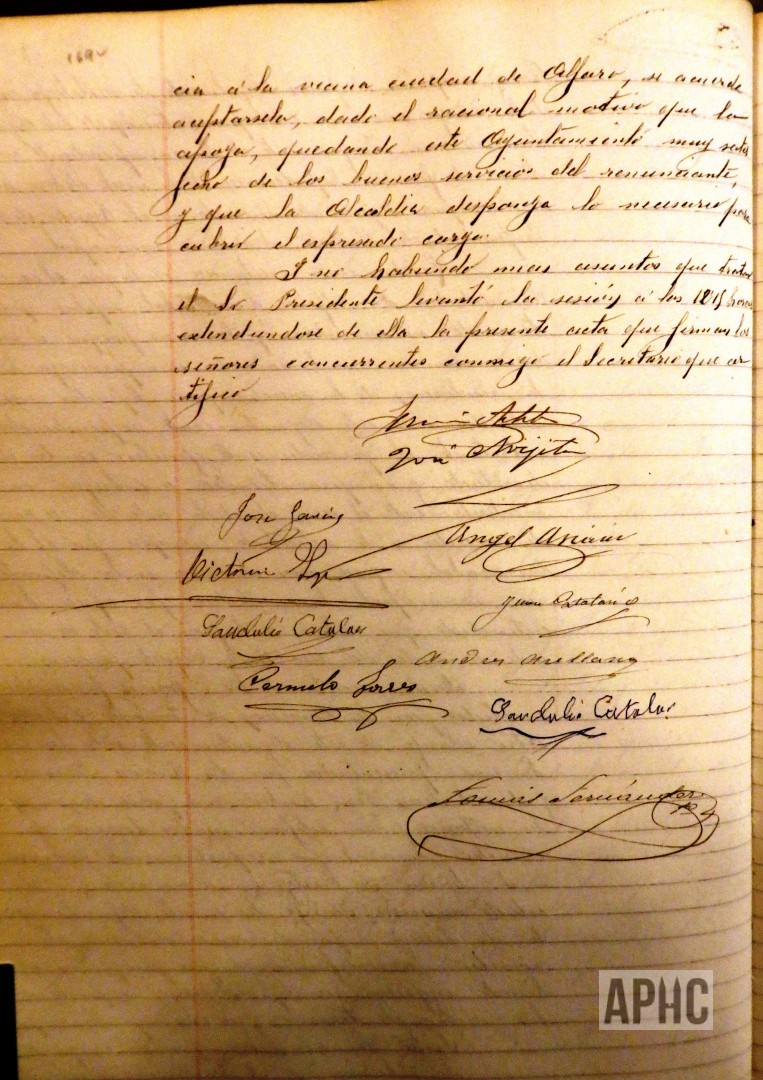 169v
cia á la vecina ciudad de Alfaro, se acuerda
aceptarsela, dado el racional motivo que la
apoya, quedando este Ayuntamiento muy satis
fecho de los buenos servicios del renunciante,
y que la Alcaldia disponga lo necesario para
cubrir el espresado cargo.
I no habiendo mas asuntos que tratar
el Sr Presidente levantó la sesión á las 12'15 horas
extendiendose de ella la presente acta que firman los
señores concurrentes conmigo el Secretario que cer
tifico
José
José García
Angel Asiain
Victorino
Juan
Gaudulio Catalan
Andres Arellano
Carmelo Torres
Gaudulio Catalan
Tomás Fernández
APHC